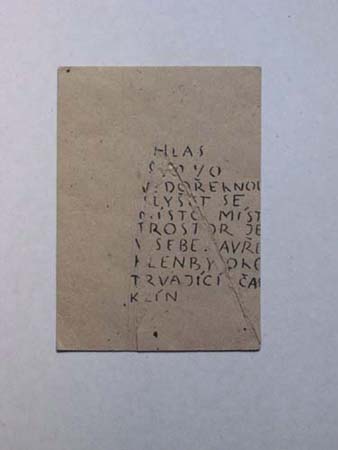 HLAS
SLOVO
NEDOŘEKNOU
SLYŠET SE
MÍSTO MÍST
PROSTOR JE
V SEBE
KLENBY OKO
TRVAJÍCÍ ČAS
KLÍN